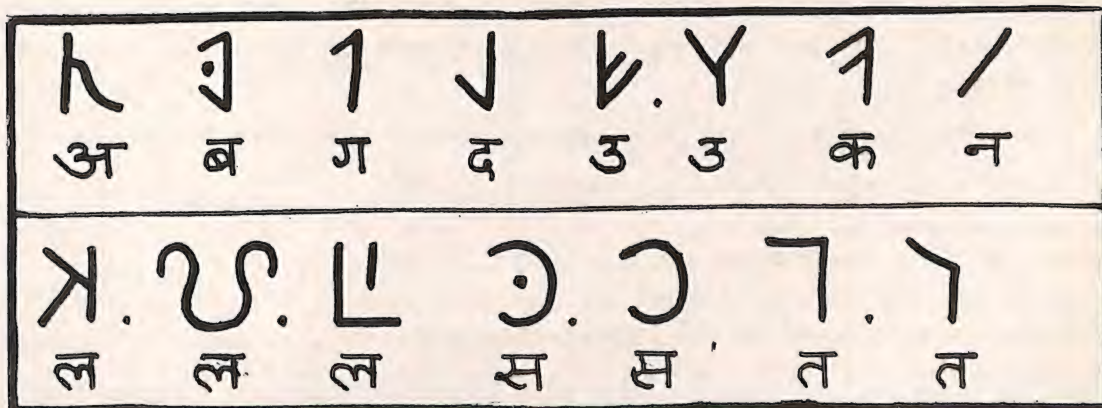 अ ब ग द उ उ क न
ल ल ल स स त त